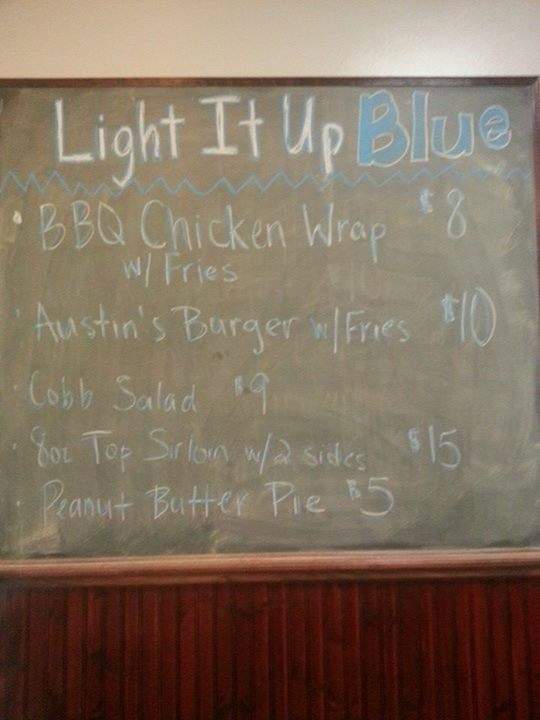 Light It Up Blue
• BBQ Chicken Wrap $8
w/ Fries
• Austin's Burger w/Fries $10
• Cobb Salad $9
• 8oz Top Sirloin w/2 sides $15
• Peanut Butter Pie $5